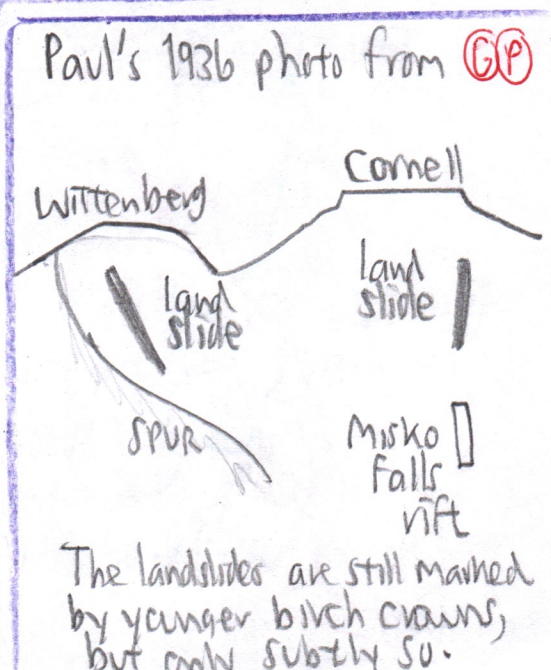 Paul's 1936 photo from GP
Cornell
Wittenberg
land
slide
land
slide
SPUR
Misko
falls
rift
The landslides are still marked
by younger birch crowns,
but only subtly so.